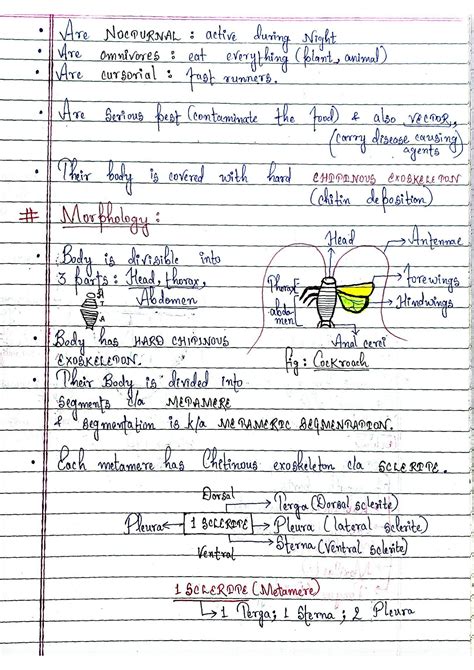 • Are NOCTURNAL : active during Night
• Are omnivores : eat everything (plant, animal)
• Are cursorial : fast runners.
• Are serious pest (contaminate the food) & also VECTOR,
(carry disease causing agents)
• Their body is covered with hard CHITINOUS EXOSKELETON
(chitin deposition)
# Morphology :
• Body is divisible into
3 parts : Head, thorax,
Abdomen
H
T
A
Head
Antennae
Thorax
Forewings
Hindwings
abdomen
Anal cerci
fig : Cockroach
• Body has HARD CHITINOUS
EXOSKELETON.
• Their Body is divided into
segments c/a METAMERE
& segmentation is k/a METAMERIC SEGMENTATION.
• Each metamere has Chitinous exoskeleton c/a SCLERITE.
Dorsal
Terga (Dorsal sclerite)
Pleura ← 1 SCLERITE → Pleura (lateral sclerite)
Sterna (Ventral sclerite)
Ventral
1 SCLERITE (Metamere)
↳ 1 Terga ; 1 Sterna ; 2 Pleura